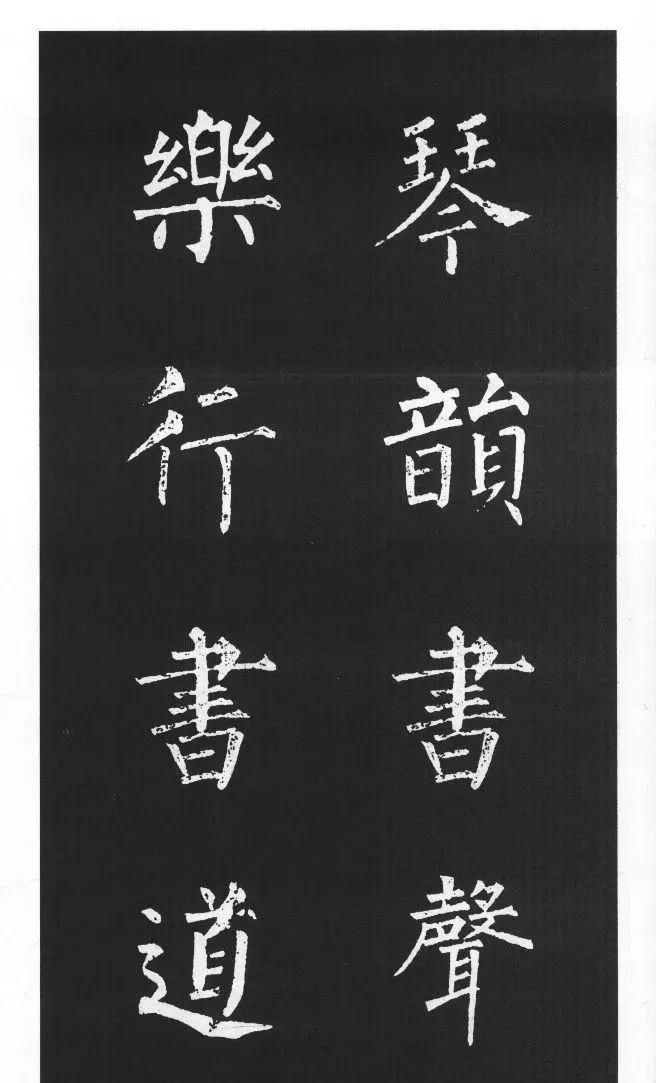 琴韻書聲
樂行書道